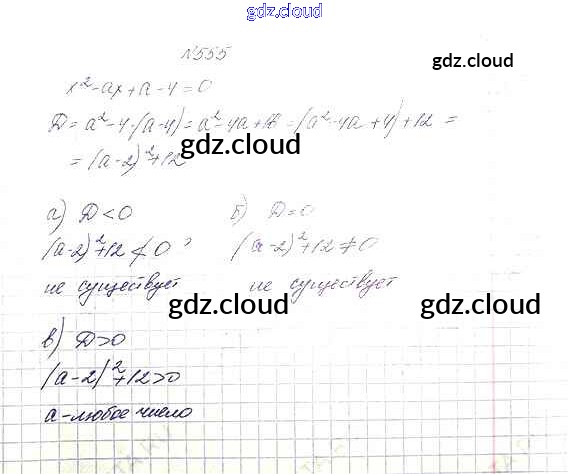 gdz.cloud
№555
gdz.cloud
x²-ax+a-4=0
D=a²-4·(a-4)=a²-4a+16=(a²-4a+4)+12=
=(a-2)²+12
gdz.cloud
а) D<0 б) D=0
(a-2)²+12≮0, (a-2)²+12≠0
не существует не существует
gdz.cloud gdz.cloud gdz.cloud
в) D>0
(a-2)²+12>0
a-любое число